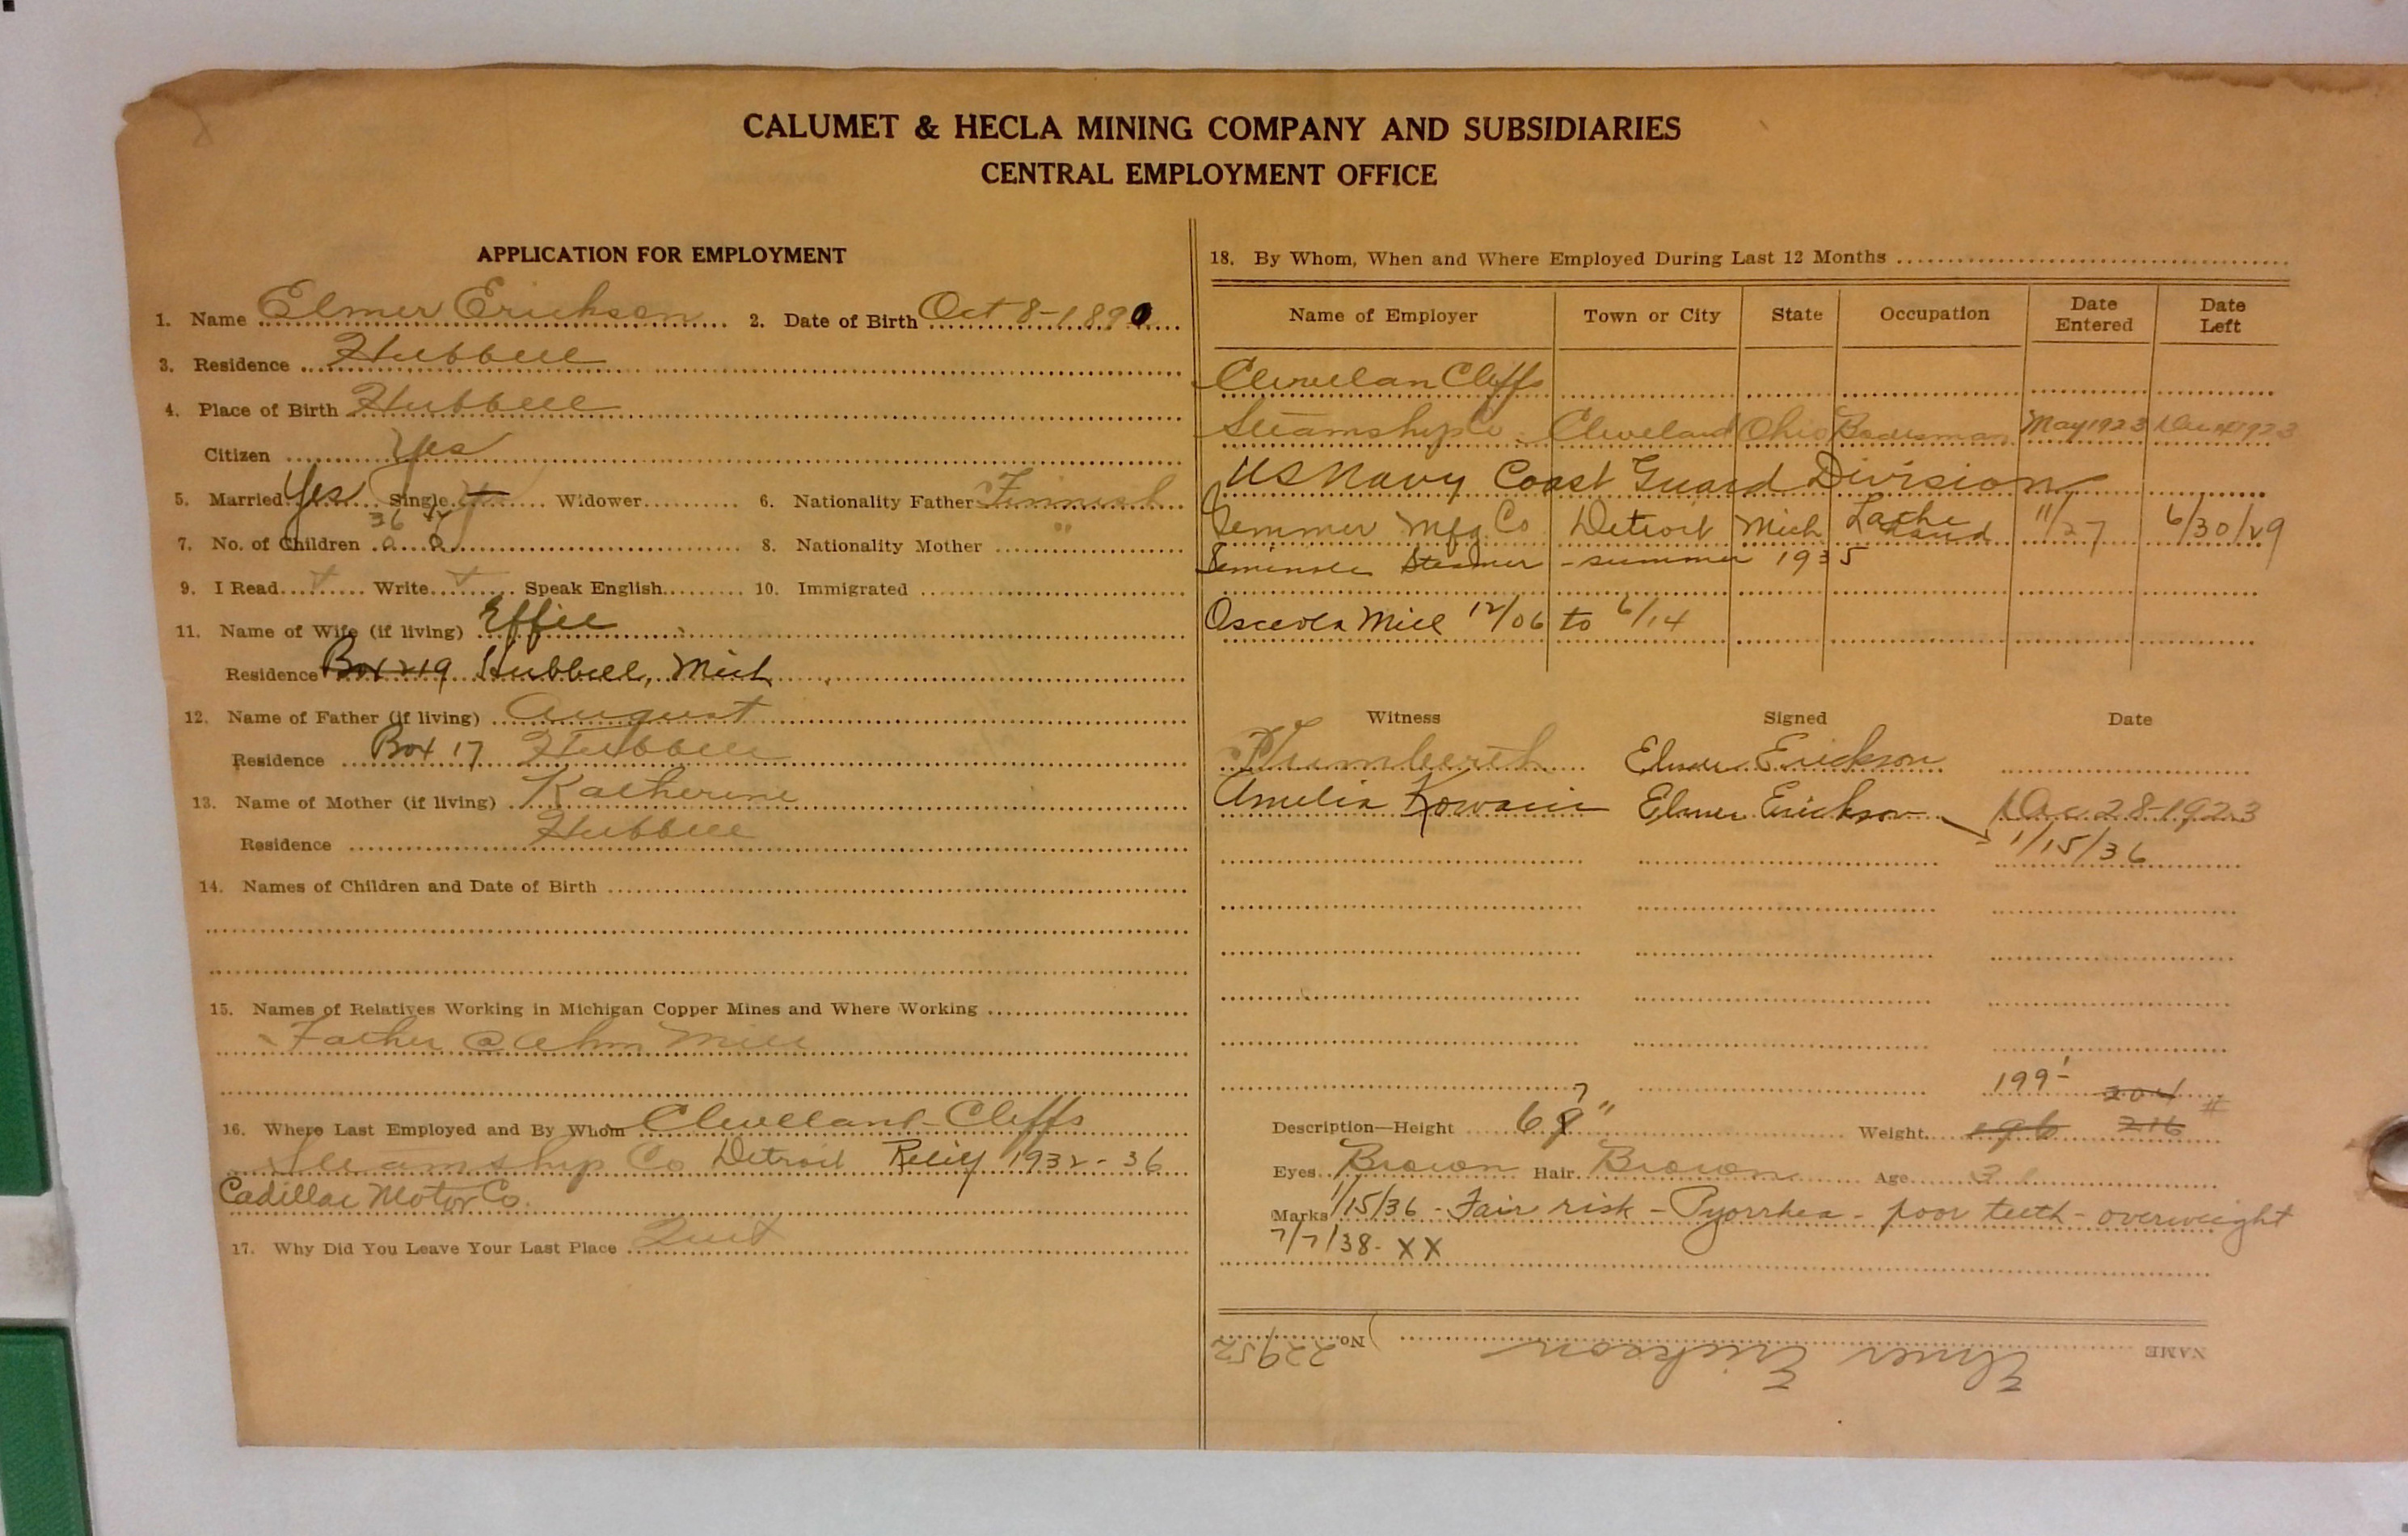 CALUMET & HECLA MINING COMPANY AND SUBSIDIARIES
CENTRAL EMPLOYMENT OFFICE
APPLICATION FOR EMPLOYMENT
1. Name Elmer Erickson 2. Date of Birth Oct 8-1890
3. Residence Hubbell
4. Place of Birth Hubbell
Citizen Yes
5. Married Yes Single Widower 6. Nationality Father Finnish
7. No. of Children 8. Nationality Mother "
9. I Read Write Speak English 10. Immigrated
11. Name of Wife (if living) Effie
Residence Box 219 Hubbell, Mich
12. Name of Father (if living) August
Residence Box 17 Hubbell
13. Name of Mother (if living) Katherine
Residence Hubbell
14. Names of Children and Date of Birth
15. Names of Relatives Working in Michigan Copper Mines and Where Working
Father @ Ahm Mill
16. Where Last Employed and By Whom Cleveland-Cliffs
Steamship Co Detroit 1932-36
Cadillac Motor Co.
17. Why Did You Leave Your Last Place Quit
18. By Whom, When and Where Employed During Last 12 Months
Name of Employer Town or City State Occupation Date Entered Date Left
Clevelan Cliffs
Steamship Co Cleveland Ohio May 1923 1923
US Navy Coast Guard Division
Gemmer Mfg. Co Detroit Mich Lathe Hand 11/27 6/30/29
Seminole Steamer - summer 1935
Osceola Mill 12/06 to 6/14
Witness Signed Date
Elmer Erickson
Amelia Elmer Erickson Dec 28-1923
1/15/36
199- 204 #
Description—Height 67" Weight 196 216
Eyes Brown Hair Brown Age 3
Marks 1/15/36 - Fair risk - Pyorrhea - poor teeth - overweight
7/7/38- XX
NAME Elmer Erickson No. 22952